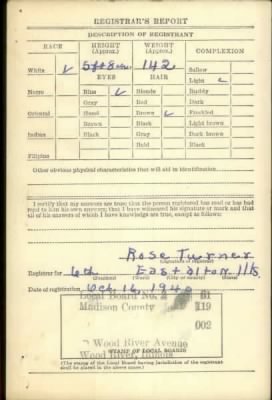 REGISTRAR'S REPORT
DESCRIPTION OF REGISTRANT
RACE HEIGHT (Approx.) WEIGHT (Approx.) COMPLEXION
White ✓ 5ft 8 142 Sallow
EYES HAIR Light ✓
Negro Blue ✓ Blonde Ruddy
Gray Red Dark
Oriental Hazel Brown ✓ Freckled
Brown Black Light brown
Indian Black Gray Dark brown
Bald Black
Filipino
Other obvious physical characteristics that will aid in identification
I certify that my answers are true; that the person registered has read or has had
read to him his own answers; that I have witnessed his signature or mark and that
all of his answers of which I have knowledge are true, except as follows:
Rose Turner
(Signature of registrar)
Registrar for 6th East Alton Ills
(Precinct) (Ward) (City or county) (State)
Date of registration Oct. 16, 1940
Local Board No. 2 51
Madison County 119
002
Wood River Avenue
Wood River, Illinois
(STAMP OF LOCAL BOARD)
(The stamp of the Local Board having jurisdiction of the registrant
shall be placed in the above space.)